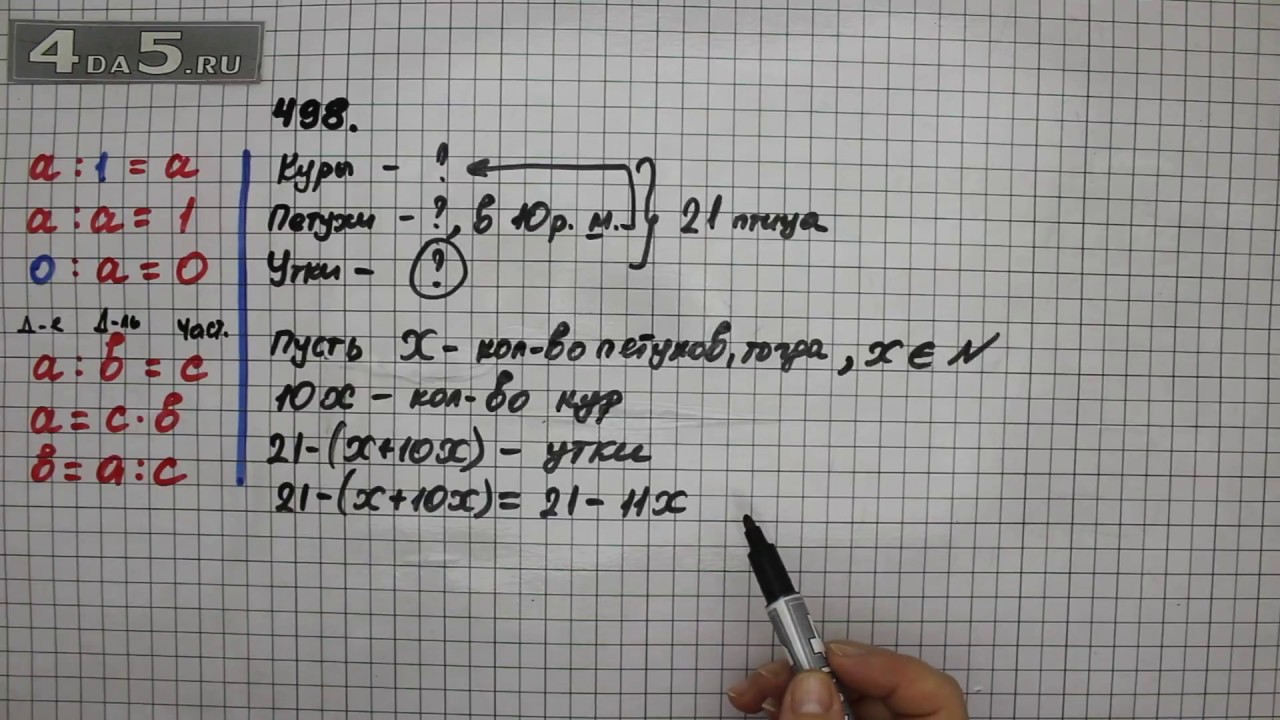 4DA5.RU
498.
a : 1 = a
a : a = 1
0 : a = 0
Д-е Д-ль Част.
a : b = c
a = c · b
b = a : c
Куры - ?
Петухи - ?, в 10 р. м. } 21 птица
Утки - ?
Пусть x - кол-во петухов, тогда, x ∈ N
10x - кол-во кур
21-(x+10x) - утки
21-(x+10x) = 21 - 11x